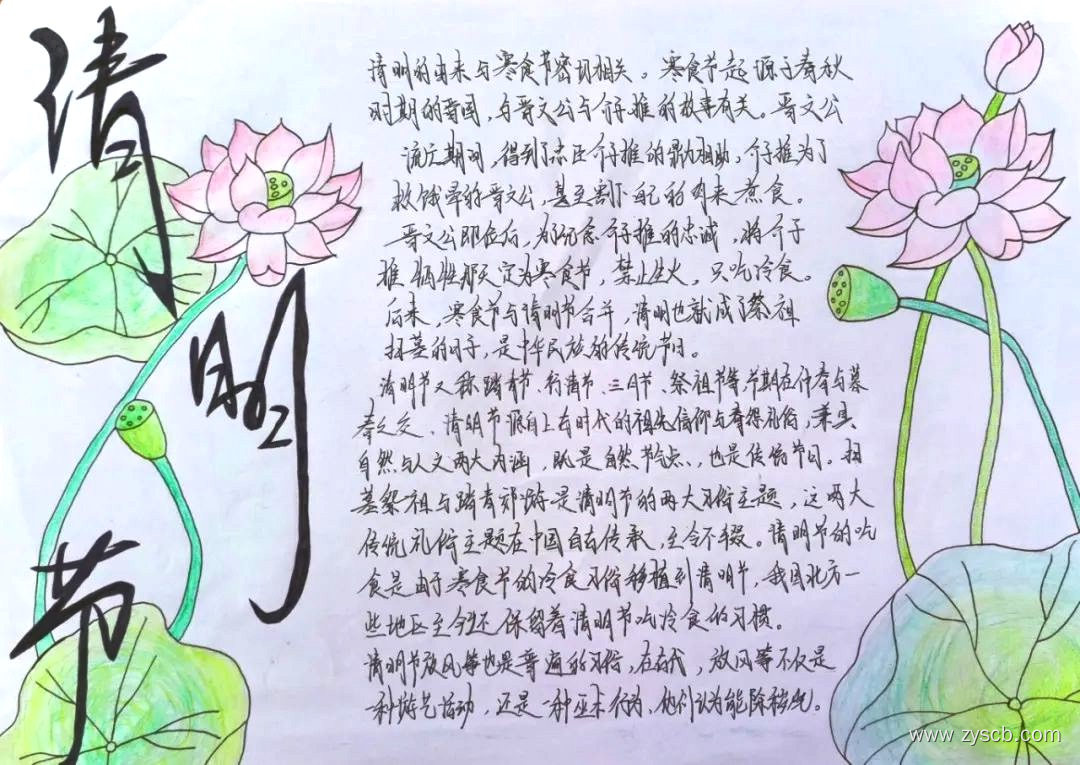 清明节
清明的由来与寒食节密切相关。寒食节起源于春秋
时期的晋国，与晋文公与介子推的故事有关。晋文公
流亡期间，得到了忠臣介子推的鼎力相助，介子推为了
救饿晕的晋文公，甚至割下自己的肉来煮食。
晋文公即位后，为了纪念介子推的忠诚，将介子
推牺牲那天定为寒食节，禁止生火，只吃冷食。
后来，寒食节与清明节合并，清明也就成了祭祖
扫墓的日子，是中华民族的传统节日。
清明节又称踏青节、行清节、三月节、祭祖节等，节期在仲春与暮
春之交、清明节源自上古时代的祖先信仰与春祭礼俗，兼具
自然与人文两大内涵，既是自然节气点，也是传统节日。扫
墓祭祖与踏青郊游是清明节的两大习俗主题，这两大
传统礼俗主题在中国自古传承，至今不辍。清明节的吃
食是由于寒食节的冷食习俗移植到清明节，我国北方一
些地区至今还保留着清明节吃冷食的习惯。
清明节放风筝也是普遍的习俗，在古代，放风筝不仅是
一种游艺活动，还是一种巫术行为，他们认为能除秽气。
www.zyscb.com